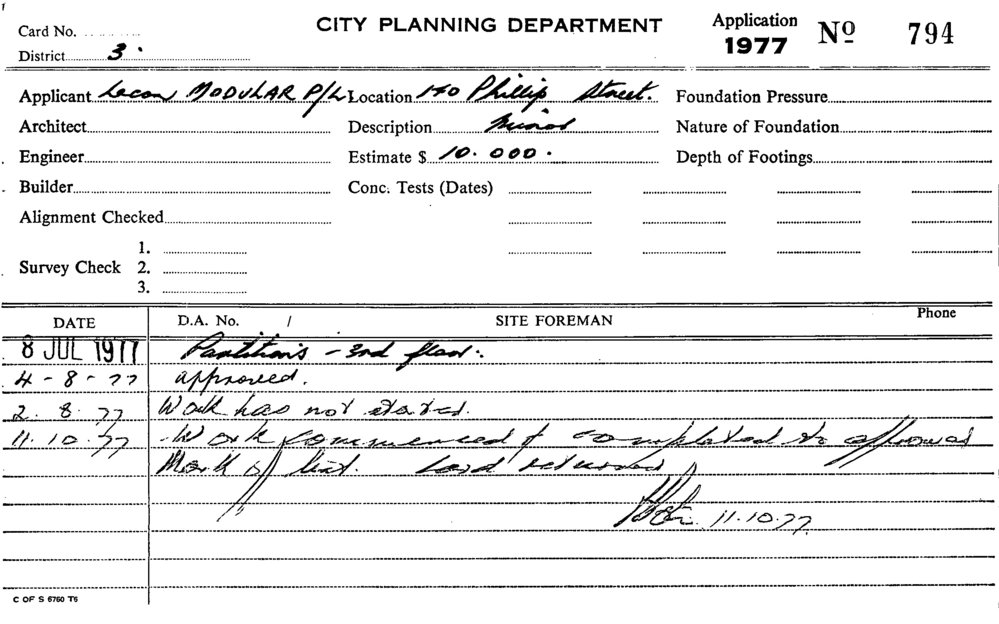 CITY PLANNING DEPARTMENT
Application
1977 Nº 794
Card No.
District 3.
Applicant Lecon MODULAR P/L Location 140 Phillip Street. Foundation Pressure
Architect Description Minor Nature of Foundation
Engineer Estimate $ 10.000. Depth of Footings
Builder Conc. Tests (Dates)
Alignment Checked
Survey Check 1.
2.
3.
DATE D.A. No. / SITE FOREMAN Phone
8 JUL 1977 Partitions - 3rd floor.
4-8-77 approved.
2.8.77 Work has not started.
11.10.77 Work commenced & completed to approval
Mark off list. Card returned
11.10.77
C OF S 6760 T6